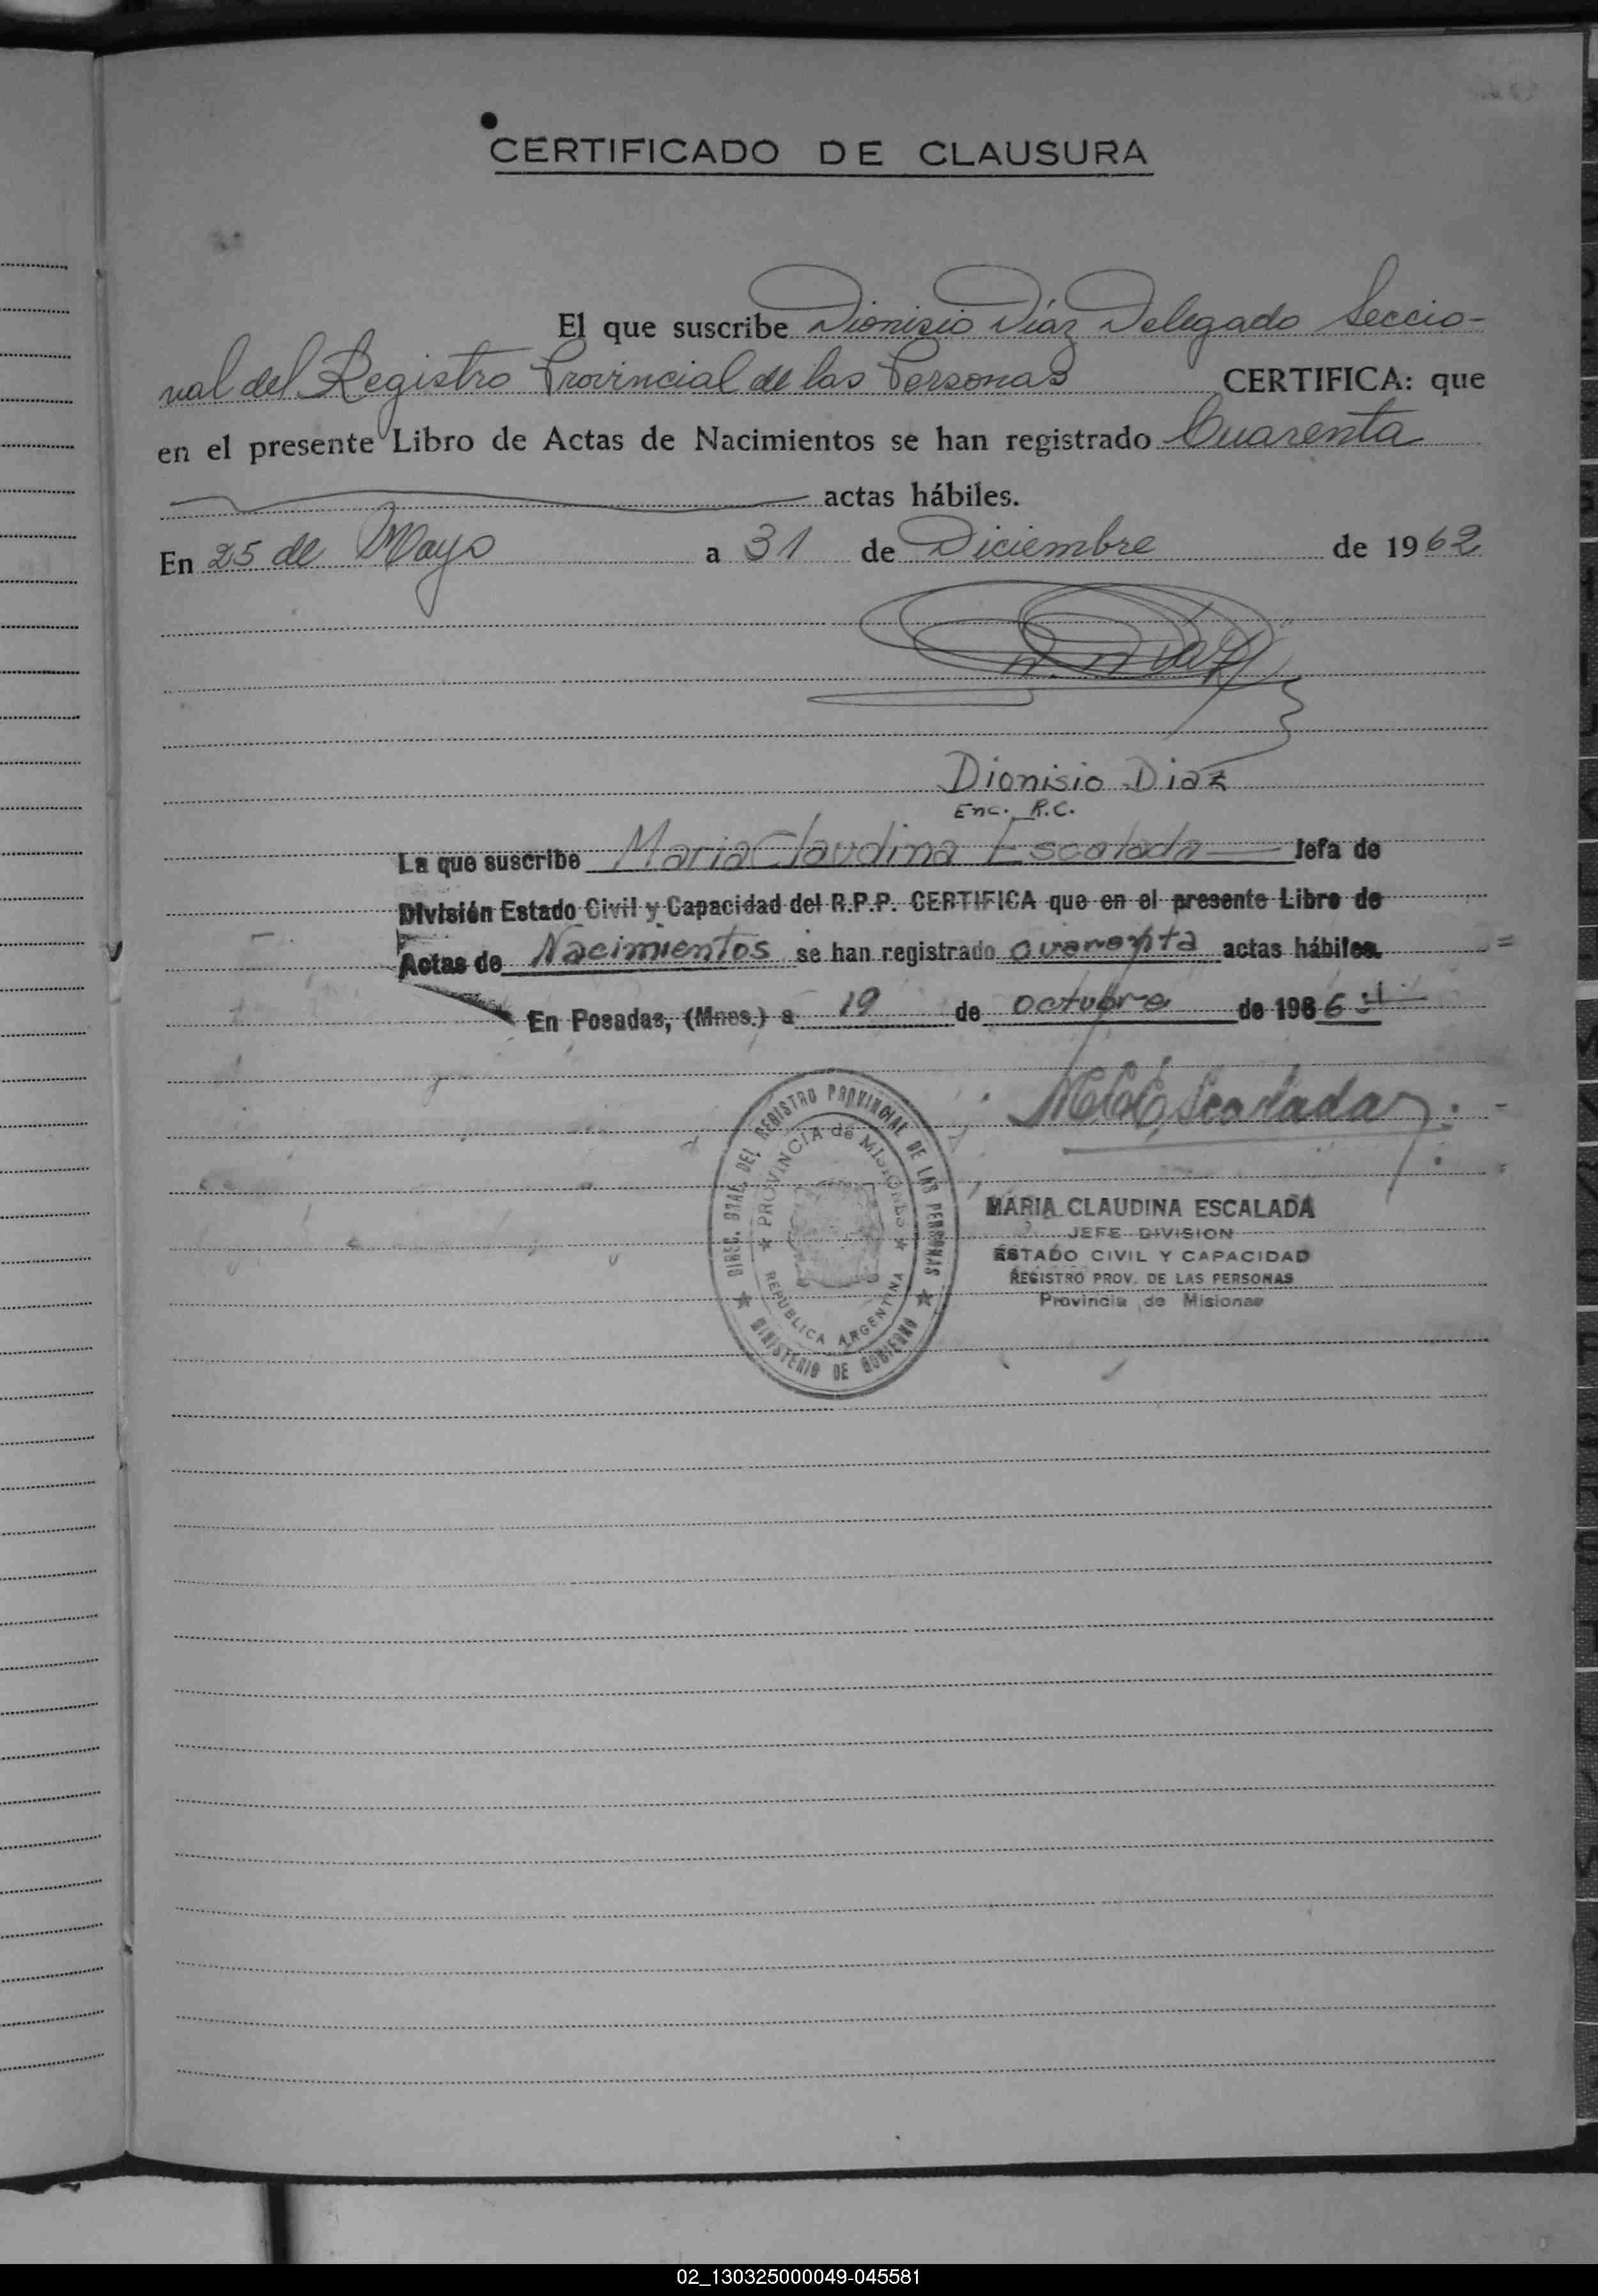 CERTIFICADO DE CLAUSURA
El que suscribe Dionisio Díaz Delegado Seccio-
nal del Registro Provincial de las Personas CERTIFICA: que
en el presente Libro de Actas de Nacimientos se han registrado Cuarenta
actas hábiles.
En 25 de Mayo a 31 de Diciembre de 1962
D. Diaz
Dionisio Diaz
Enc. R.C.
La que suscribe Maria Claudina Escalada Jefa de
División Estado Civil y Capacidad del R.P.P. CERTIFICA que en el presente Libro de
Actas de Nacimientos se han registrado cuarenta actas hábiles.
En Posadas, (Mnes.) a 19 de octubre de 196
Escalada
DIREC. GRAL. DEL REGISTRO PROVINCIAL DE LAS PERSONAS
PROVINCIA de MISIONES
REPUBLICA ARGENTINA
MINISTERIO DE GOBIERNO
MARIA CLAUDINA ESCALADA
JEFE DIVISION
ESTADO CIVIL Y CAPACIDAD
REGISTRO PROV. DE LAS PERSONAS
Provincia de Misiones
02_130325000049-045581